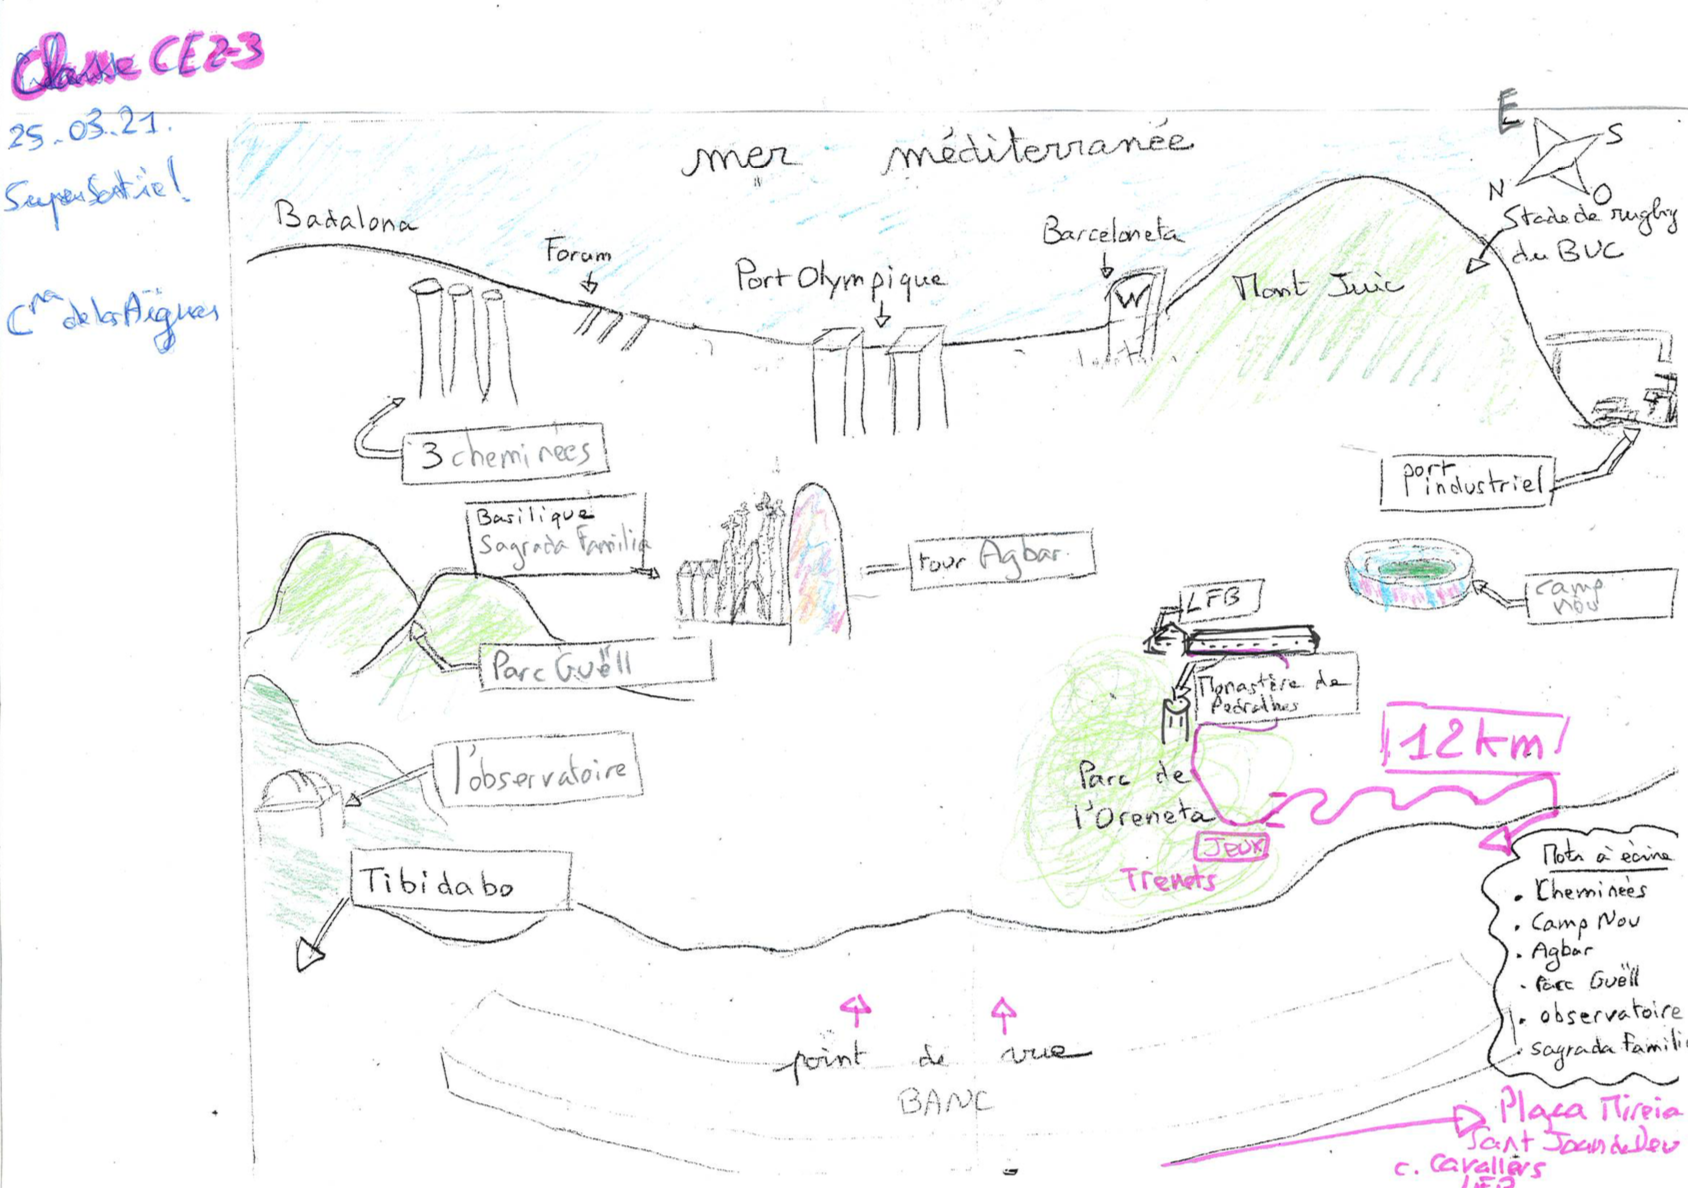 Classe CE2-3
25.03.21.
Super Sortie!
Cra de les Aigues
mer méditerranée
E
S
N
O
Badalona
Forum
Port Olympique
Barceloneta
W
Mont Juic
Stade de rugby
du BUC
3 cheminées
port
industriel
Basilique
Sagrada Familia
tour Agbar
camp
nou
LFB
Parc Guëll
Monastère de
Pedralbes
12 km
l'observatoire
Parc de
l'Oreneta
JEUX
Trenets
Tibidabo
Mots à écrire
• Cheminées
• Camp Nou
• Agbar
• Parc Guëll
• observatoire
• sagrada famili
point de vue
BANC
Plaça Mireia
Sant Joan de Deu
c. Cavallers
LFB